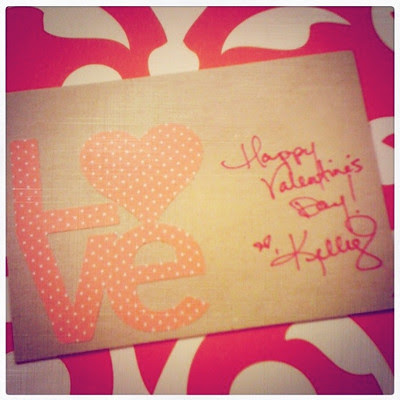 L♥
ve
Happy
Valentine's
Day!
♥, Kellie